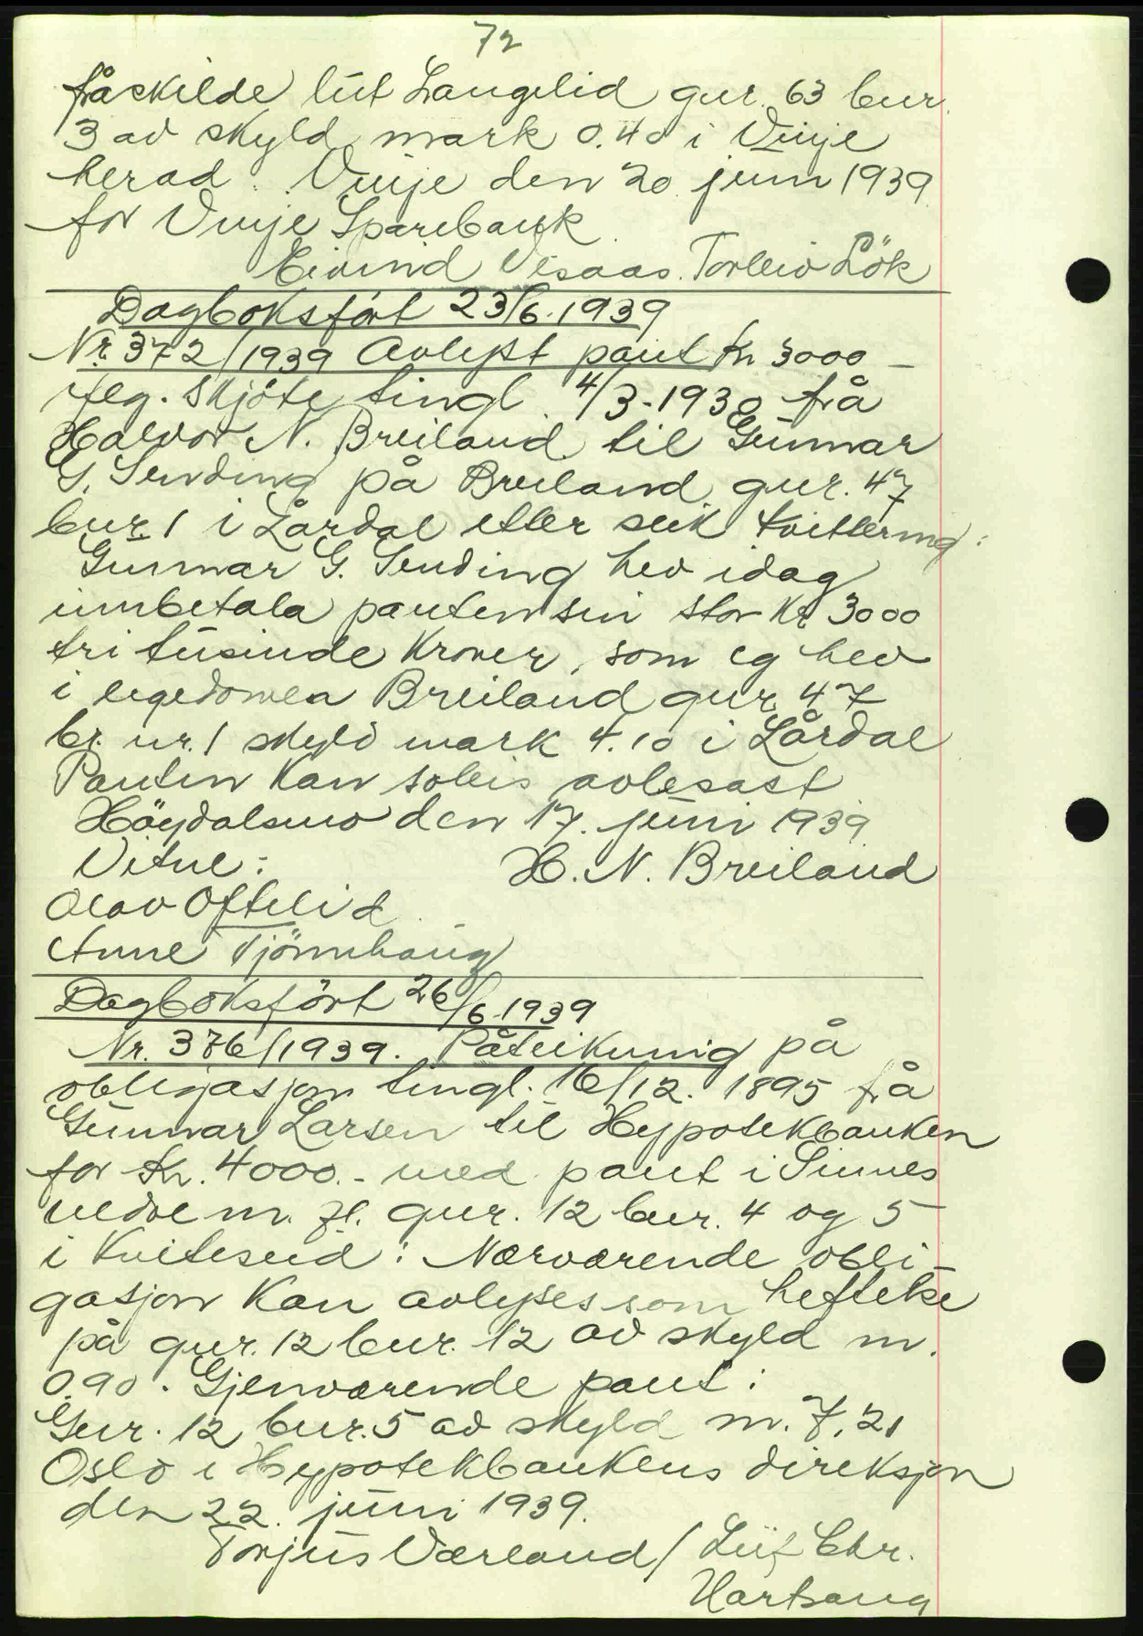 72
fråskilde lut Langelid gnr. 63 bnr.
3 av skyld mark 0.40 i Vinje
herad. Vinje den 20 juni 1939
for Vinje Sparebank.
Eivind Vesaas. Torleiv Lök
Dagboksfört 23/6.1939
Nr. 372/1939 Avlyst pant Kr 3000 -
iflg. skjöte tingl. 4/3-1930 frå
Halvor N. Breiland til Gunnar
G. Sending på Breiland gnr. 47
bnr. 1 i Lårdal etter slik kvittering:
Gunnar G. Sending hev idag
innbetala panten sin stor Kr 3000
tri tusinde kroner, som eg hev
i eigedomen Breiland gnr. 47
br. nr. 1 skyld mark 4.10 i Lårdal
Panten kan soleis avlesast
Höydalsmo den 17. juni 1939
Vitne: H. N. Breiland
Olav Oftelid
Anne Tjönnhaug
Dagboksfört 26/6.1939
Nr. 376/1939. Påteikning på
obligasjon tingl. 16/12. 1895 frå
Gunnar Larsen til Hypotekbanken
for Kr. 4000.- med pant i Sinnes
nedre m. fl. gnr. 12 bnr. 4 og 5
i Kviteseid: Nærværende obli-
gasjon kan avlyses som heftelse
på gnr. 12 bnr. 12 av skyld m.
0.90. Gjenværende pant:
Gnr. 12 bnr. 5 av skyld m. 7,21
Oslo i Hypotekbankens direksjon
den 22. juni 1939.
Torjus Værland / Leif Chr.
Hartsang